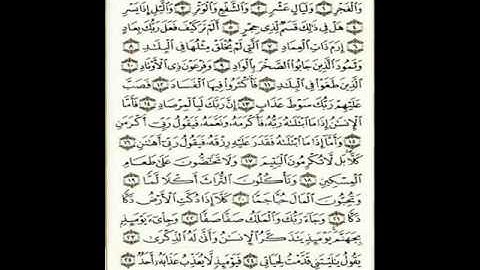 وَٱلْفَجْرِ ١ وَلَيَالٍ عَشْرٍ ٢ وَٱلشَّفْعِ وَٱلْوَتْرِ ٣ وَٱلَّيْلِ إِذَا يَسْرِ
٤ هَلْ فِى ذَٰلِكَ قَسَمٌ لِّذِى حِجْرٍ ٥ أَلَمْ تَرَ كَيْفَ فَعَلَ رَبُّكَ بِعَادٍ
٦ إِرَمَ ذَاتِ ٱلْعِمَادِ ٧ ٱلَّتِى لَمْ يُخْلَقْ مِثْلُهَا فِى ٱلْبِلَٰدِ ٨
وَثَمُودَ ٱلَّذِينَ جَابُوا۟ ٱلصَّخْرَ بِٱلْوَادِ ٩ وَفِرْعَوْنَ ذِى ٱلْأَوْتَادِ ١٠
ٱلَّذِينَ طَغَوْا۟ فِى ٱلْبِلَٰدِ ١١ فَأَكْثَرُوا۟ فِيهَا ٱلْفَسَادَ ١٢ فَصَبَّ
عَلَيْهِمْ رَبُّكَ سَوْطَ عَذَابٍ ١٣ إِنَّ رَبَّكَ لَبِٱلْمِرْصَادِ ١٤ فَأَمَّا
ٱلْإِنسَٰنُ إِذَا مَا ٱبْتَلَىٰهُ رَبُّهُۥ فَأَكْرَمَهُۥ وَنَعَّمَهُۥ فَيَقُولُ رَبِّىٓ أَكْرَمَنِ
١٥ وَأَمَّآ إِذَا مَا ٱبْتَلَىٰهُ فَقَدَرَ عَلَيْهِ رِزْقَهُۥ فَيَقُولُ رَبِّىٓ أَهَٰنَنِ ١٦
كَلَّا بَل لَّا تُكْرِمُونَ ٱلْيَتِيمَ ١٧ وَلَا تَحَٰٓضُّونَ عَلَىٰ طَعَامِ
ٱلْمِسْكِينِ ١٨ وَتَأْكُلُونَ ٱلتُّرَاثَ أَكْلًا لَّمًّا ١٩
وَتُحِبُّونَ ٱلْمَالَ حُبًّا جَمًّا ٢٠ كَلَّآ إِذَا دُكَّتِ ٱلْأَرْضُ دَكًّا
دَكًّا ٢١ وَجَآءَ رَبُّكَ وَٱلْمَلَكُ صَفًّا صَفًّا ٢٢ وَجِا۟ىٓءَ يَوْمَئِذٍۭ
بِجَهَنَّمَ يَوْمَئِذٍ يَتَذَكَّرُ ٱلْإِنسَٰنُ وَأَنَّىٰ لَهُ ٱلذِّكْرَىٰ ٢٣
يَقُولُ يَٰلَيْتَنِى قَدَّمْتُ لِحَيَاتِى ٢٤ فَيَوْمَئِذٍ لَّا يُعَذِّبُ عَذَابَهُۥٓ أَحَدٌ ٢٥